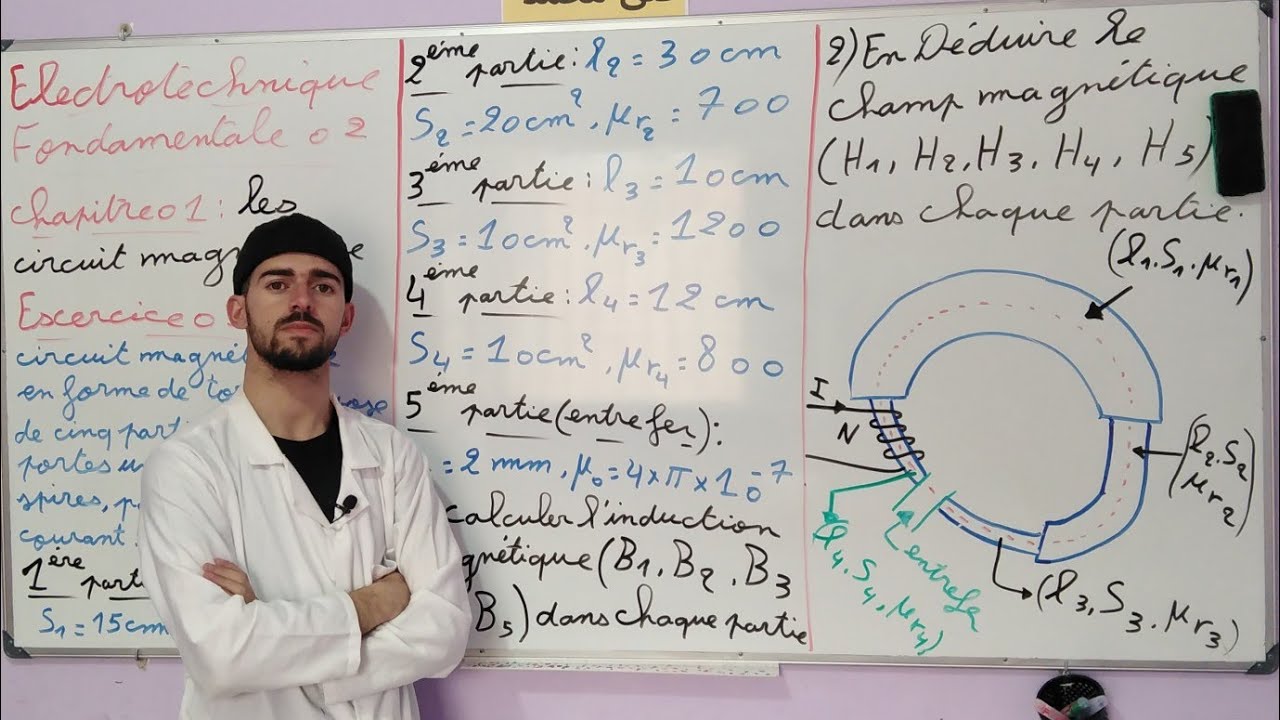 Electrotechnique
Fondamentale 02
chapitre 01: les
circuit
Escercice
circuit
en forme de
de cinq
portes
spires,
courant.
1ère
S1 = 15cm
2ème partie: l2 = 30cm
S2 = 20cm², μr2 = 700
3ème partie: l3 = 10cm
S3 = 10cm², μr3 = 1200
4ème partie: l4 = 12cm
S4 = 10cm², μr4 = 800
5ème partie (entrefer):
= 2 mm, μ0 = 4×π×10-7
calculer l'induction
(B1, B2, B3
B5) dans chaque partie
2) En Déduire le
champ magnétique
(H1, H2, H3, H4, H5)
dans chaque partie.
(l1.S1.μr1)
I
N
(l2.S2
μr2)
l4, S4, μr4)
entrefer
(l3, S3. μr3)